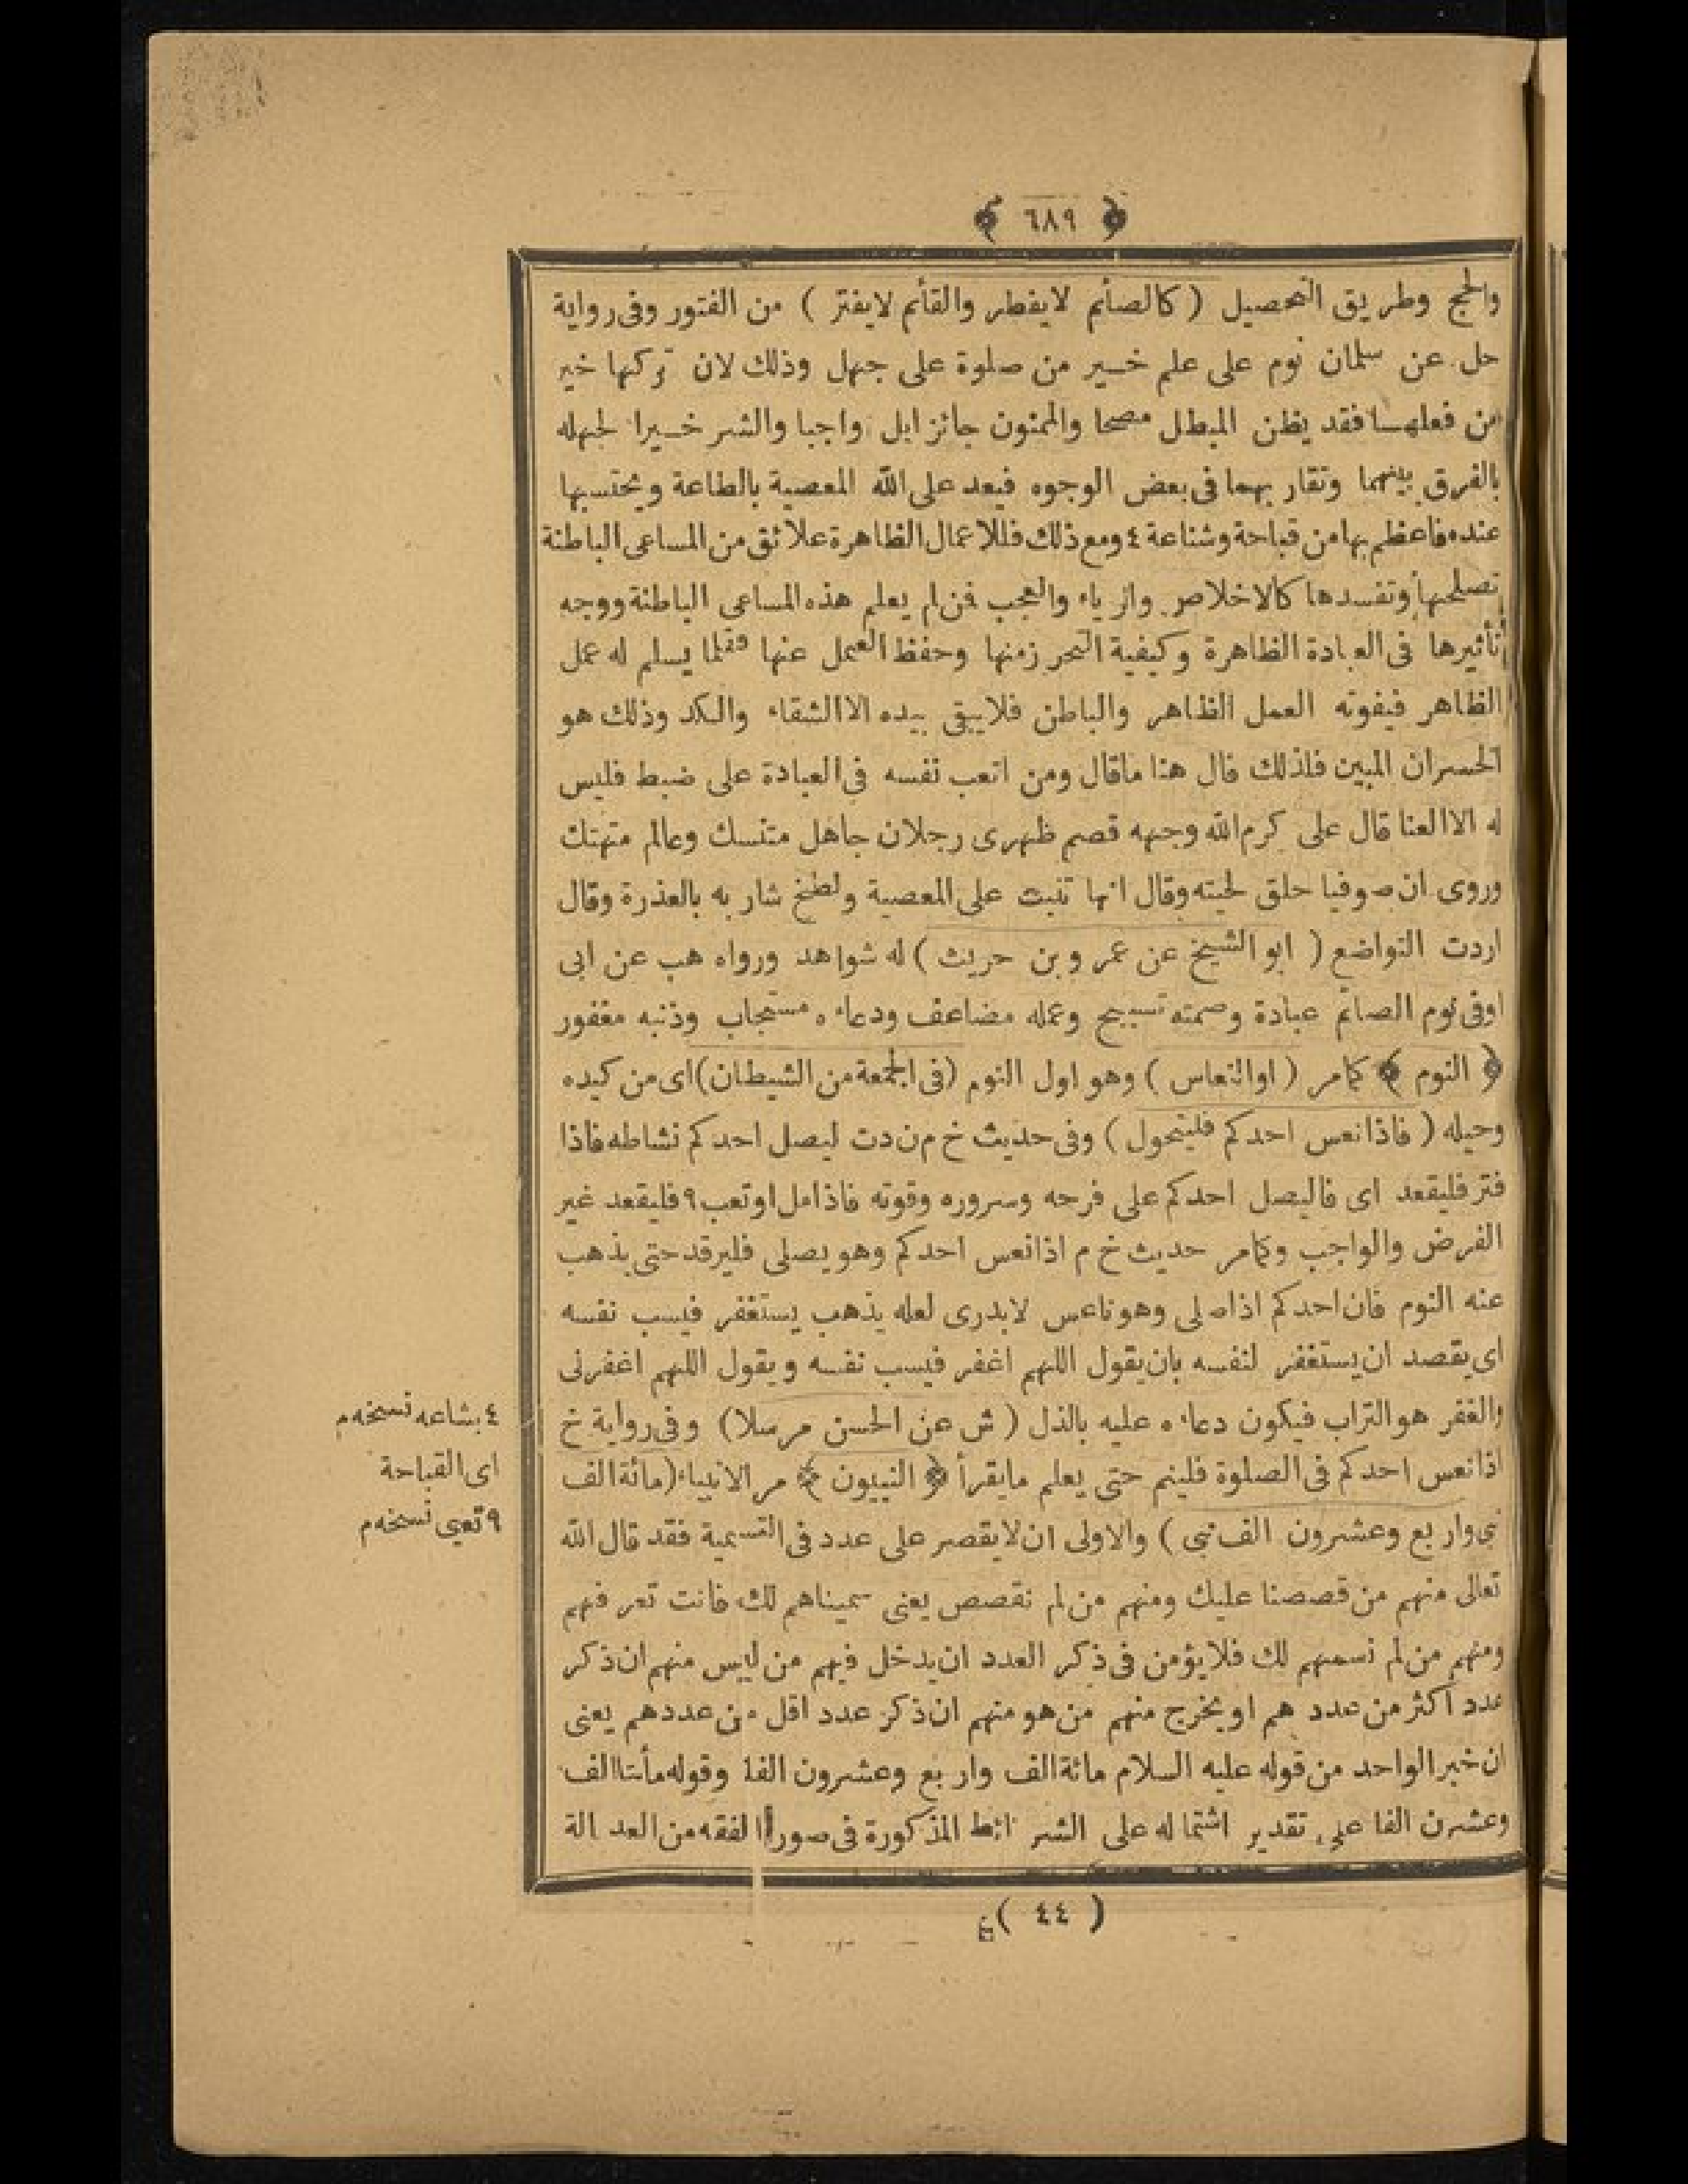 ﴿ ٦٨٩ ﴾
والحج وطريق التحصيل ( كالصائم لايفطر والقائم لايفتر ) من الفتور وفى رواية
حل عن سلمان نوم على علم خير من صلوة على جهل وذلك لان تركها خير
من فعلها فقد يظن المبطل مصححا والممنون جائزا بل واجبا والشر خيرا لجهله
بالفرق بينهما وتقار بهما فى بعض الوجوه فيعد على الله المعصية بالطاعة ويحتسبها
عنده فاعظم بها من قباحة وشناعة ٤ ومع ذلك فللاعمال الظاهرة علائق من المساعى الباطنة
تصلحها وتفسدها كالاخلاص والرياء والعجب فمن لم يعلم هذه المساعى الباطنة ووجه
تأثيرها فى العبادة الظاهرة وكيفية التحرز منها وحفظ العمل عنها فقلما يسلم له عمل
الظاهر فيفوته العمل الظاهر والباطن فلايبقى بيده الاالشقاء والكد وذلك هو
الخسران المبين فلذلك قال هنا ماقال ومن اتعب نفسه فى العبادة على ضبط فليس
له الاالعنا قال على كرم الله وجهه قصم ظهرى رجلان جاهل متنسك وعالم متهتك
وروى ان صوفيا حلق لحيته وقال انها تنبت على المعصية ولطخ شار به بالعذرة وقال
اردت التواضع ( ابو الشيخ عن عمر وبن حريث ) له شواهد ورواه هب عن ابى
اوفى نوم الصائم عبادة وصمته تسبيح وعمله مضاعف ودعاءه مستجاب وذنبه مغفور
﴿ النوم ﴾ كمامر ( اوالنعاس ) وهو اول النوم ( فى الجمعة من الشيطان ) اى من كيده
وحيله ( فاذا نعس احدكم فليتحول ) وفى حديث خ م ن د ت ليصل احدكم نشاطه فاذا
فتر فليقعد اى فاليصل احدكم على فرحه وسروره وقوته فاذا مل او تعب ٩ فليقعد غير
الفرض والواجب وكمامر حديث خ م اذا نعس احدكم وهو يصلى فليرقد حتى يذهب
عنه النوم فان احدكم اذا صلى وهو ناعس لايدرى لعله يذهب يستغفر فيسب نفسه
اى يقصد ان يستغفر لنفسه بان يقول اللهم اغفر فيسب نفسه ويقول اللهم اغفرنى
والغفر هو التراب فيكون دعاءه عليه بالذل ( ش عن الحسن مرسلا ) وفى رواية خ
اذا نعس احدكم فى الصلوة فلينم حتى يعلم مايقرأ ﴿ النبيون ﴾ مر الانبياء ( مائة الف
نبى واربع وعشرون الف نبى ) والاولى ان لايقصر على عدد فى التسمية فقد قال الله
تعالى منهم من قصصنا عليك ومنهم من لم نقصص يعنى سميناهم لك فانت تعرفهم
ومنهم من لم نسمهم لك فلايؤمن فى ذكر العدد ان يدخل فيهم من ليس منهم ان ذكر
عدد اكثر من عدد هم او يخرج منهم من هو منهم ان ذكر عدد اقل من عددهم يعنى
ان خبر الواحد من قوله عليه السلام مائة الف واربع وعشرون الفا وقوله مأتا الف
وعشرن الفا على تقدير اشتماله على الشرائط المذكورة فى صور الفقه من العدالة
٤ بشاعه نسخه م
اى القباحة
٩ تعيى نسخه م
( ٤٤ )